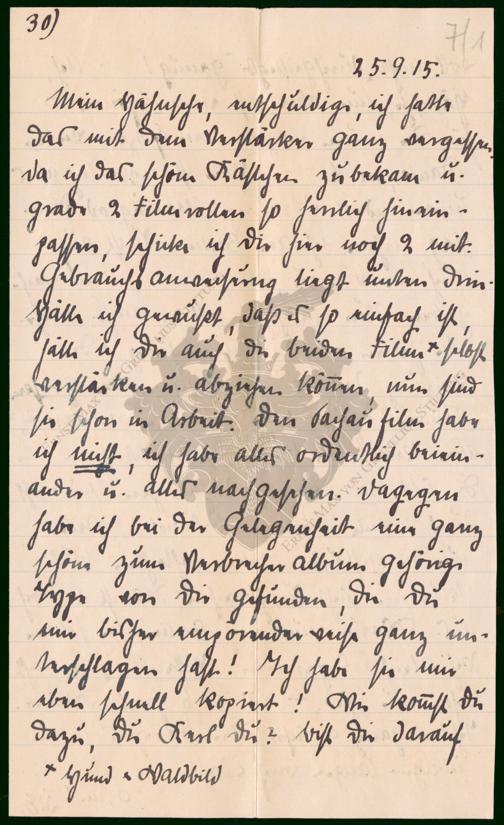 30)
7/1
25.9.15.
Mein Hähnsche, entschuldige, ich hatte
das mit dem Verstärker ganz vergessen.
Da ich das schöne Kästchen zubekam u.
grade 2 Filmrollen so herrlich hinein-
passen, schicke ich Dir hier noch 2 mit.
Gebrauchsanweisung liegt unten drin.
Hätte ich gewußt, daß es so einfach ist,
hätte ich Dir auch die beiden Films + selbst
verstärken u. abziehen können, nun sind
sie schon in Arbeit. Den Dachaufilm habe
ich nicht, ich habe alles ordentlich beiein-
ander u. alles nachgesehen. Dagegen
habe ich bei der Gelegenheit eine ganz
schöne zum Verbrecheralbum gehörige
Type von Dir gefunden, die Du
mir bisher empörenderweise ganz un-
terschlagen hast! Ich habe sie mir
eben schnell kopiert! Wie kommst Du
dazu, Du Kerl Du? Bist Du darauf
+ Hund u Waldbild